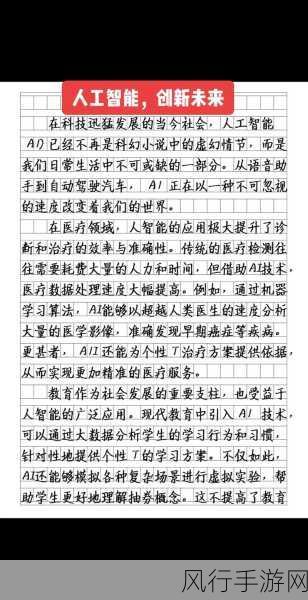 人工智能，创新未来
在科技迅猛发展的当今社会，人工智能
AI）已经不再是科幻小说中的虚幻情节，而是
我们日常生活中不可或缺的一部分。从语音助
手到自动驾驶汽车，AI正在以一种不可忽视
的速度改变着我们的世界。
在医疗领域，人智能的应用极大提升了诊
断和治疗的效率与准确性。传统的医疗检测往
往需要耗费大量的人力和时间，但借助AI技术，
医疗数据处理速度大幅提高。例如，通过机器
学习算法，AI能够以超越人类医生的速度分析
大量的医学影像，准确发现早期癌症等疾病。
更甚者，AII还能为个性T治疗方案提供依据，
从而实现更加精准的医疗服务。
教育作为社会发展的重要支柱，也受益于
人智能的广泛应用。现代教育中引入AI 技术，
可以通过大数据分析学生的学习行为和习惯，
针对性地提供个性T的学习方案。不仅如此，
AI还能够模拟各种复杂场景进行虚拟实验，帮
助学生更好地理解抽象概念。这不提高了教育
风行手游网